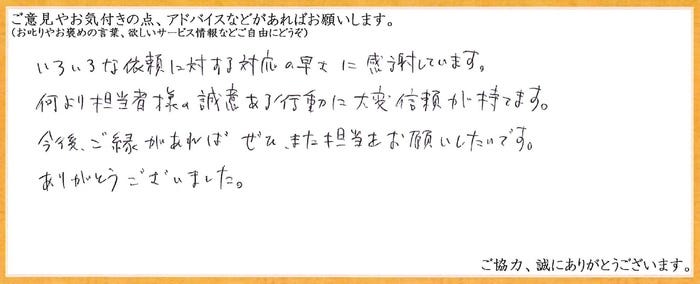 ご意見やお気付きの点、アドバイスなどがあればお願いします。
(お叱りやお褒めの言葉、欲しいサービス情報などご自由にどうぞ)
いろいろな依頼に対する対応の早さに感謝しています。
何より担当者様の誠意ある行動に大変信頼が持てます。
今後、ご縁があれば ぜひ、また担当をお願いしたいです。
ありがとうございました。
ご協力、誠にありがとうございます。